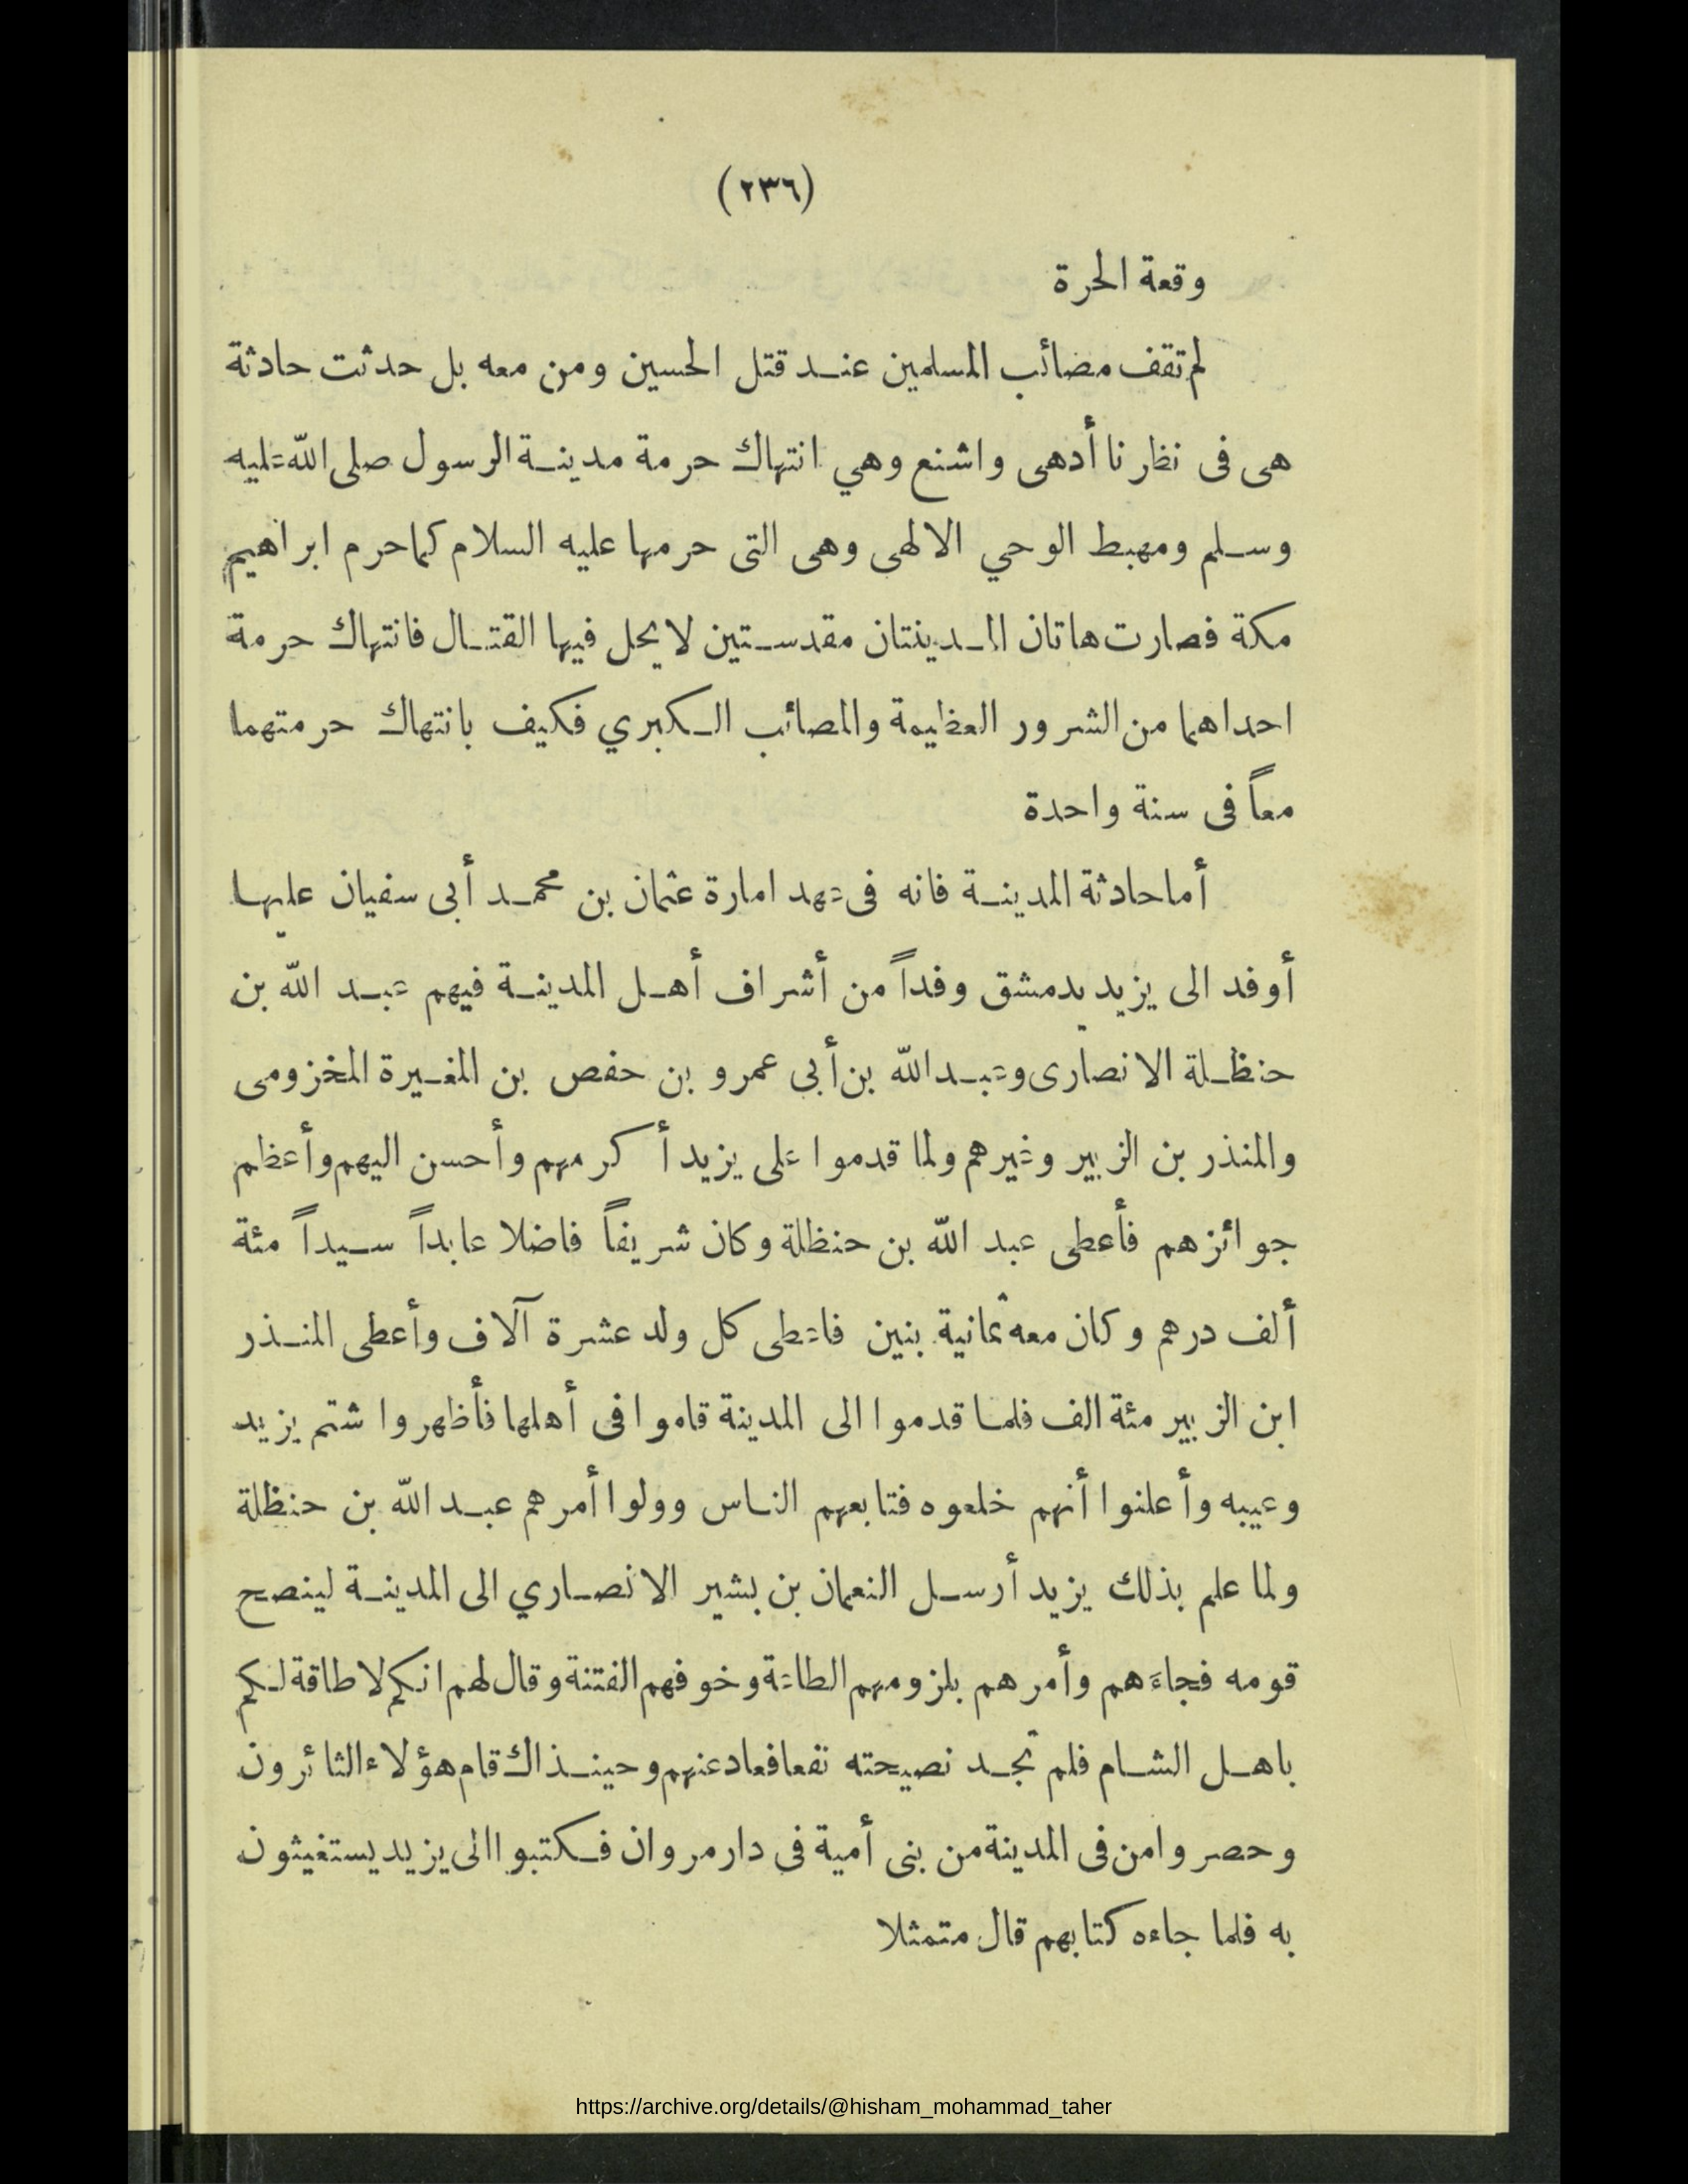 (٢٣٦)
وقعة الحرة
لم تقف مصائب المسلمين عند قتل الحسين ومن معه بل حدثت حادثة
هى فى نظرنا أدهى واشنع وهي انتهاك حرمة مدينة الرسول صلى الله عليه
وسلم ومهبط الوحي الالهى وهى التى حرمها عليه السلام كما حرم ابراهيم
مكة فصارت هاتان المدينتان مقدستين لا يحل فيها القتال فانتهاك حرمة
احداهما من الشرور العظيمة والمصائب الكبري فكيف بانتهاك حرمتهما
معاً فى سنة واحدة
أما حادثة المدينة فانه فى عهد امارة عثمان بن محمد أبى سفيان عليها
أوفد الى يزيد بدمشق وفداً من أشراف أهل المدينة فيهم عبد الله بن
حنظلة الانصارى وعبد الله بن أبي عمرو بن حفص بن المغيرة المخزومى
والمنذر بن الزبير وغيرهم ولما قدموا على يزيد أكرمهم وأحسن اليهم وأعظم
جوائزهم فأعطى عبد الله بن حنظلة وكان شريفاً فاضلا عابداً سيداً مئة
ألف درهم وكان معه ثمانية بنين فاعطى كل ولد عشرة آلاف وأعطى المنذر
ابن الزبير مئة الف فلما قدموا الى المدينة قاموا فى أهلها فأظهروا شتم يزيد
وعيبه وأعلنوا أنهم خلعوه فتابعهم الناس وولوا أمرهم عبد الله بن حنظلة
ولما علم بذلك يزيد أرسل النعمان بن بشير الانصاري الى المدينة لينصح
قومه فجاءهم وأمرهم بلزومهم الطاعة وخوفهم الفتنة وقال لهم انكم لا طاقة لكم
باهل الشام فلم تجد نصيحته نفعا فعاد عنهم وحينذاك قام هؤلاء الثائرون
وحصروا من فى المدينة من بنى أمية فى دار مروان فكتبوا الى يزيد يستغيثون
به فلما جاءه كتابهم قال متمثلا
https://archive.org/details/@hisham_mohammad_taher